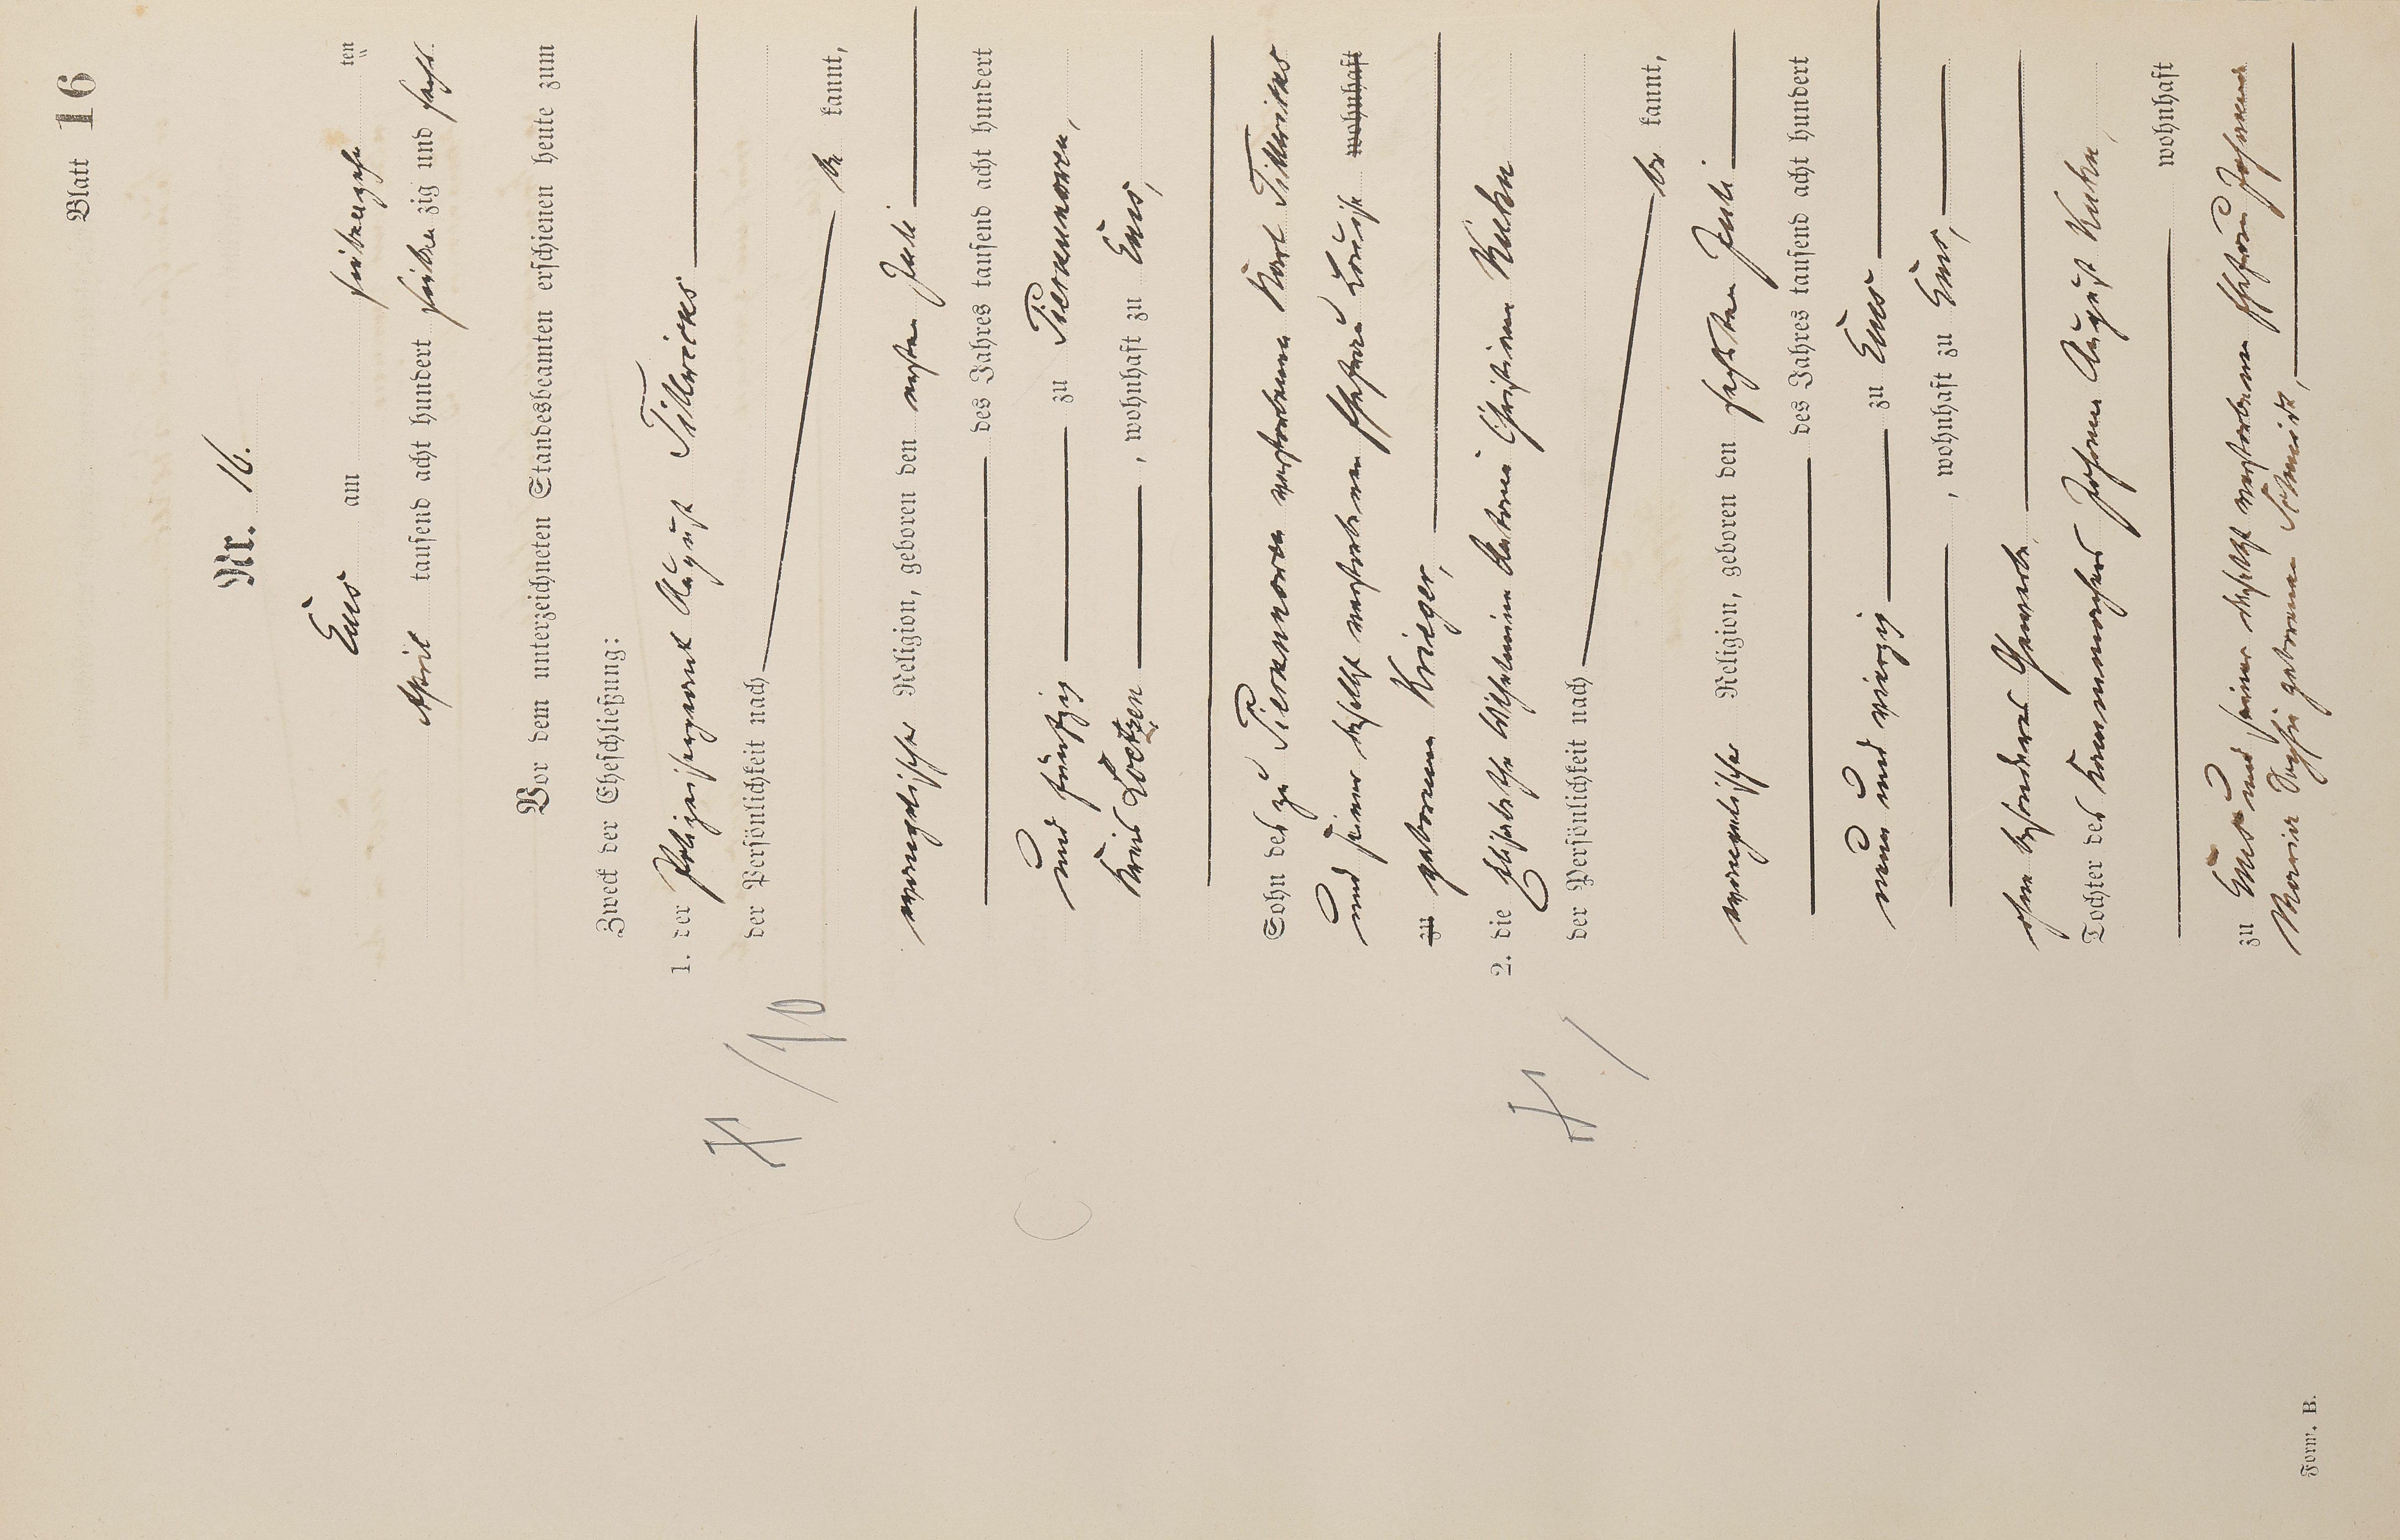 Blatt 16
Nr. 16.
Ems am siebenzehn ten
April tausend acht hundert sieben zig und sechs.
Vor dem unterzeichneten Standesbeamten erschienen heute zum
Zweck der Eheschließung:
1. der Polizeisergeant August Tillwicks
der Persönlichkeit nach
be kannt,
evangelischer Religion, geboren den ersten Juli
des Jahres tausend acht hundert
und fünfzig zu Pierkunowen,
Kreis Loetzen, wohnhaft zu Ems,
Sohn des zu Pierkunowen verstorbenen Karl Tillwicks
und seiner daselbst verstorbenen Ehefrau Louise wohnhaft
zu geborenen Krieger,
2. die Elisabethe Wilhelmine Antonie Christiane Kuhn
der Persönlichkeit nach
be kannt,
evangelischer Religion, geboren den sechsten Juli
des Jahres tausend acht hundert
neun und vierzig zu Ems
, wohnhaft zu Ems,
ohne besonderes Gewerbe,
Tochter des Kammmachers Johann August Kuhn,
wohnhaft
zu Ems und seiner daselbst verstorbenen Ehefrau Johanne
Maria Sophie geborenen Schmidt,
H / 90
H /
Form. B.